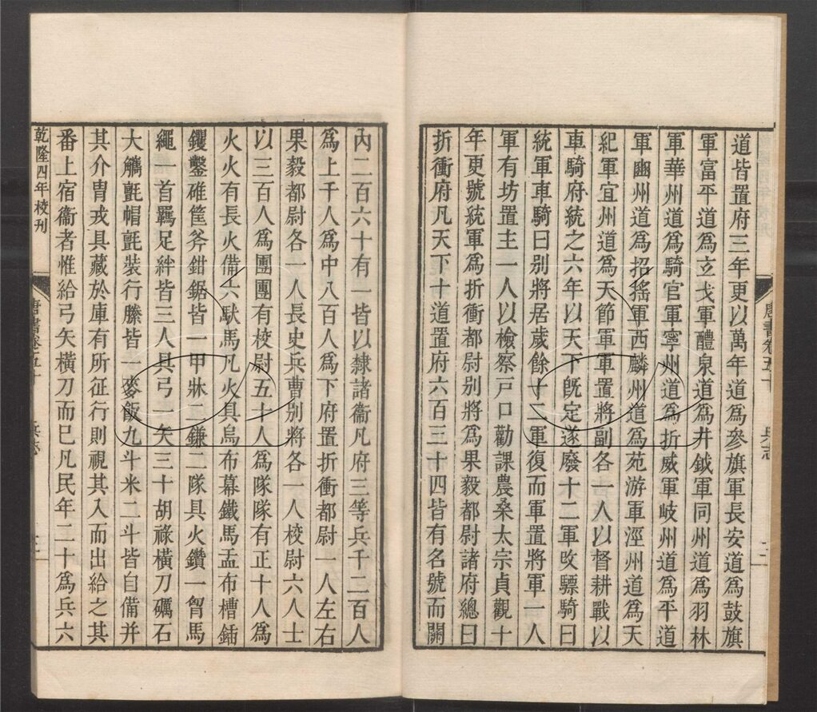 道皆置府三年更以萬年道爲參旗軍長安道爲鼓旗
軍富平道爲玄戈軍醴泉道爲井鉞軍同州道爲羽林
軍華州道爲騎官軍寧州道爲折威軍岐州道爲平道
軍豳州道爲招搖軍西麟州道爲苑游軍涇州道爲天
紀軍宜州道爲天節軍軍置將副各一人以督耕戰以
車騎府統之六年以天下旣定遂廢十二軍改驃騎曰
統軍車騎曰別將居歲餘十二軍復而軍置將軍一人
軍有坊置主一人以檢察戸口勸課農桑太宗貞觀十
年更號統軍爲折衝都尉別將爲果毅都尉諸府總曰
折衝府凡天下十道置府六百三十四皆有名號而關
內二百六十有一皆以隸諸衞凡府三等兵千二百人
爲上千人爲中八百人爲下府置折衝都尉一人左右
果毅都尉各一人長史兵曹別將各一人校尉六人士
以三百人爲團團有校尉五十人爲隊隊有正十人爲
火火有長火備六馱馬凡火具烏布幕鐵馬盂布槽鍤
钁鑿碓筐斧鉗鋸皆一甲牀二鎌二隊具火鑽一胷馬
繩一首羈足絆皆三人具弓一矢三十胡祿橫刀礪石
大觿氈帽氈裝行縢皆一麥飯九斗米二斗皆自備并
其介胄戎具藏於庫有所征行則視其入而出給之其
番上宿衞者惟給弓矢橫刀而巳凡民年二十爲兵六
乾隆四年校刊
唐書卷五十
兵志